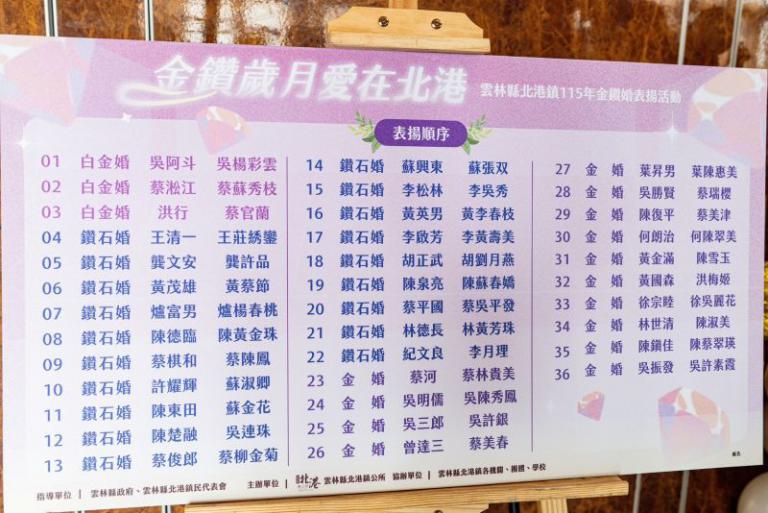 金鑽歲月愛在北港
雲林縣北港鎮115年金鑽婚表揚活動
表揚順序
01 白金婚 吳阿斗 吳楊彩雲
02 白金婚 蔡淞江 蔡蘇秀枝
03 白金婚 洪行 蔡官蘭
04 鑽石婚 王清一 王莊綉鑾
05 鑽石婚 龔文安 龔許品
06 鑽石婚 黃茂雄 黃蔡節
07 鑽石婚 爐富男 爐楊春桃
08 鑽石婚 陳德臨 陳黃金珠
09 鑽石婚 蔡棋和 蔡陳鳳
10 鑽石婚 許耀輝 蘇淑卿
11 鑽石婚 陳東田 蘇金花
12 鑽石婚 陳楚融 吳連珠
13 鑽石婚 蔡俊郎 蔡柳金菊
14 鑽石婚 蘇興東 蘇張双
15 鑽石婚 李松林 李吳秀
16 鑽石婚 黃英男 黃李春枝
17 鑽石婚 李啟芳 李黃壽美
18 鑽石婚 胡正武 胡劉月燕
19 鑽石婚 陳泉亮 陳蘇春嬌
20 鑽石婚 蔡平國 蔡吳平發
21 鑽石婚 林德長 林黃芳珠
22 鑽石婚 紀文良 李月理
23 金婚 蔡河 蔡林貴美
24 金婚 吳明儒 吳陳秀鳳
25 金婚 吳三郎 吳許銀
26 金婚 曾達三 蔡美春
27 金婚 葉昇男 葉陳惠美
28 金婚 吳勝賢 蔡瑞櫻
29 金婚 陳復平 蔡美津
30 金婚 何朗治 何陳翠美
31 金婚 黃金滿 陳雪玉
32 金婚 黃國森 洪梅姬
33 金婚 徐宗睦 徐吳麗花
34 金婚 林世清 陳淑美
35 金婚 陳鎮佳 陳蔡翠瑛
36 金婚 吳振發 吳許素霞
指導單位 | 雲林縣政府、雲林縣北港鎮民代表會 主辦單位 | 北港 雲林縣北港鎮公所 協辦單位 | 雲林縣北港鎮各機關、團體、學校